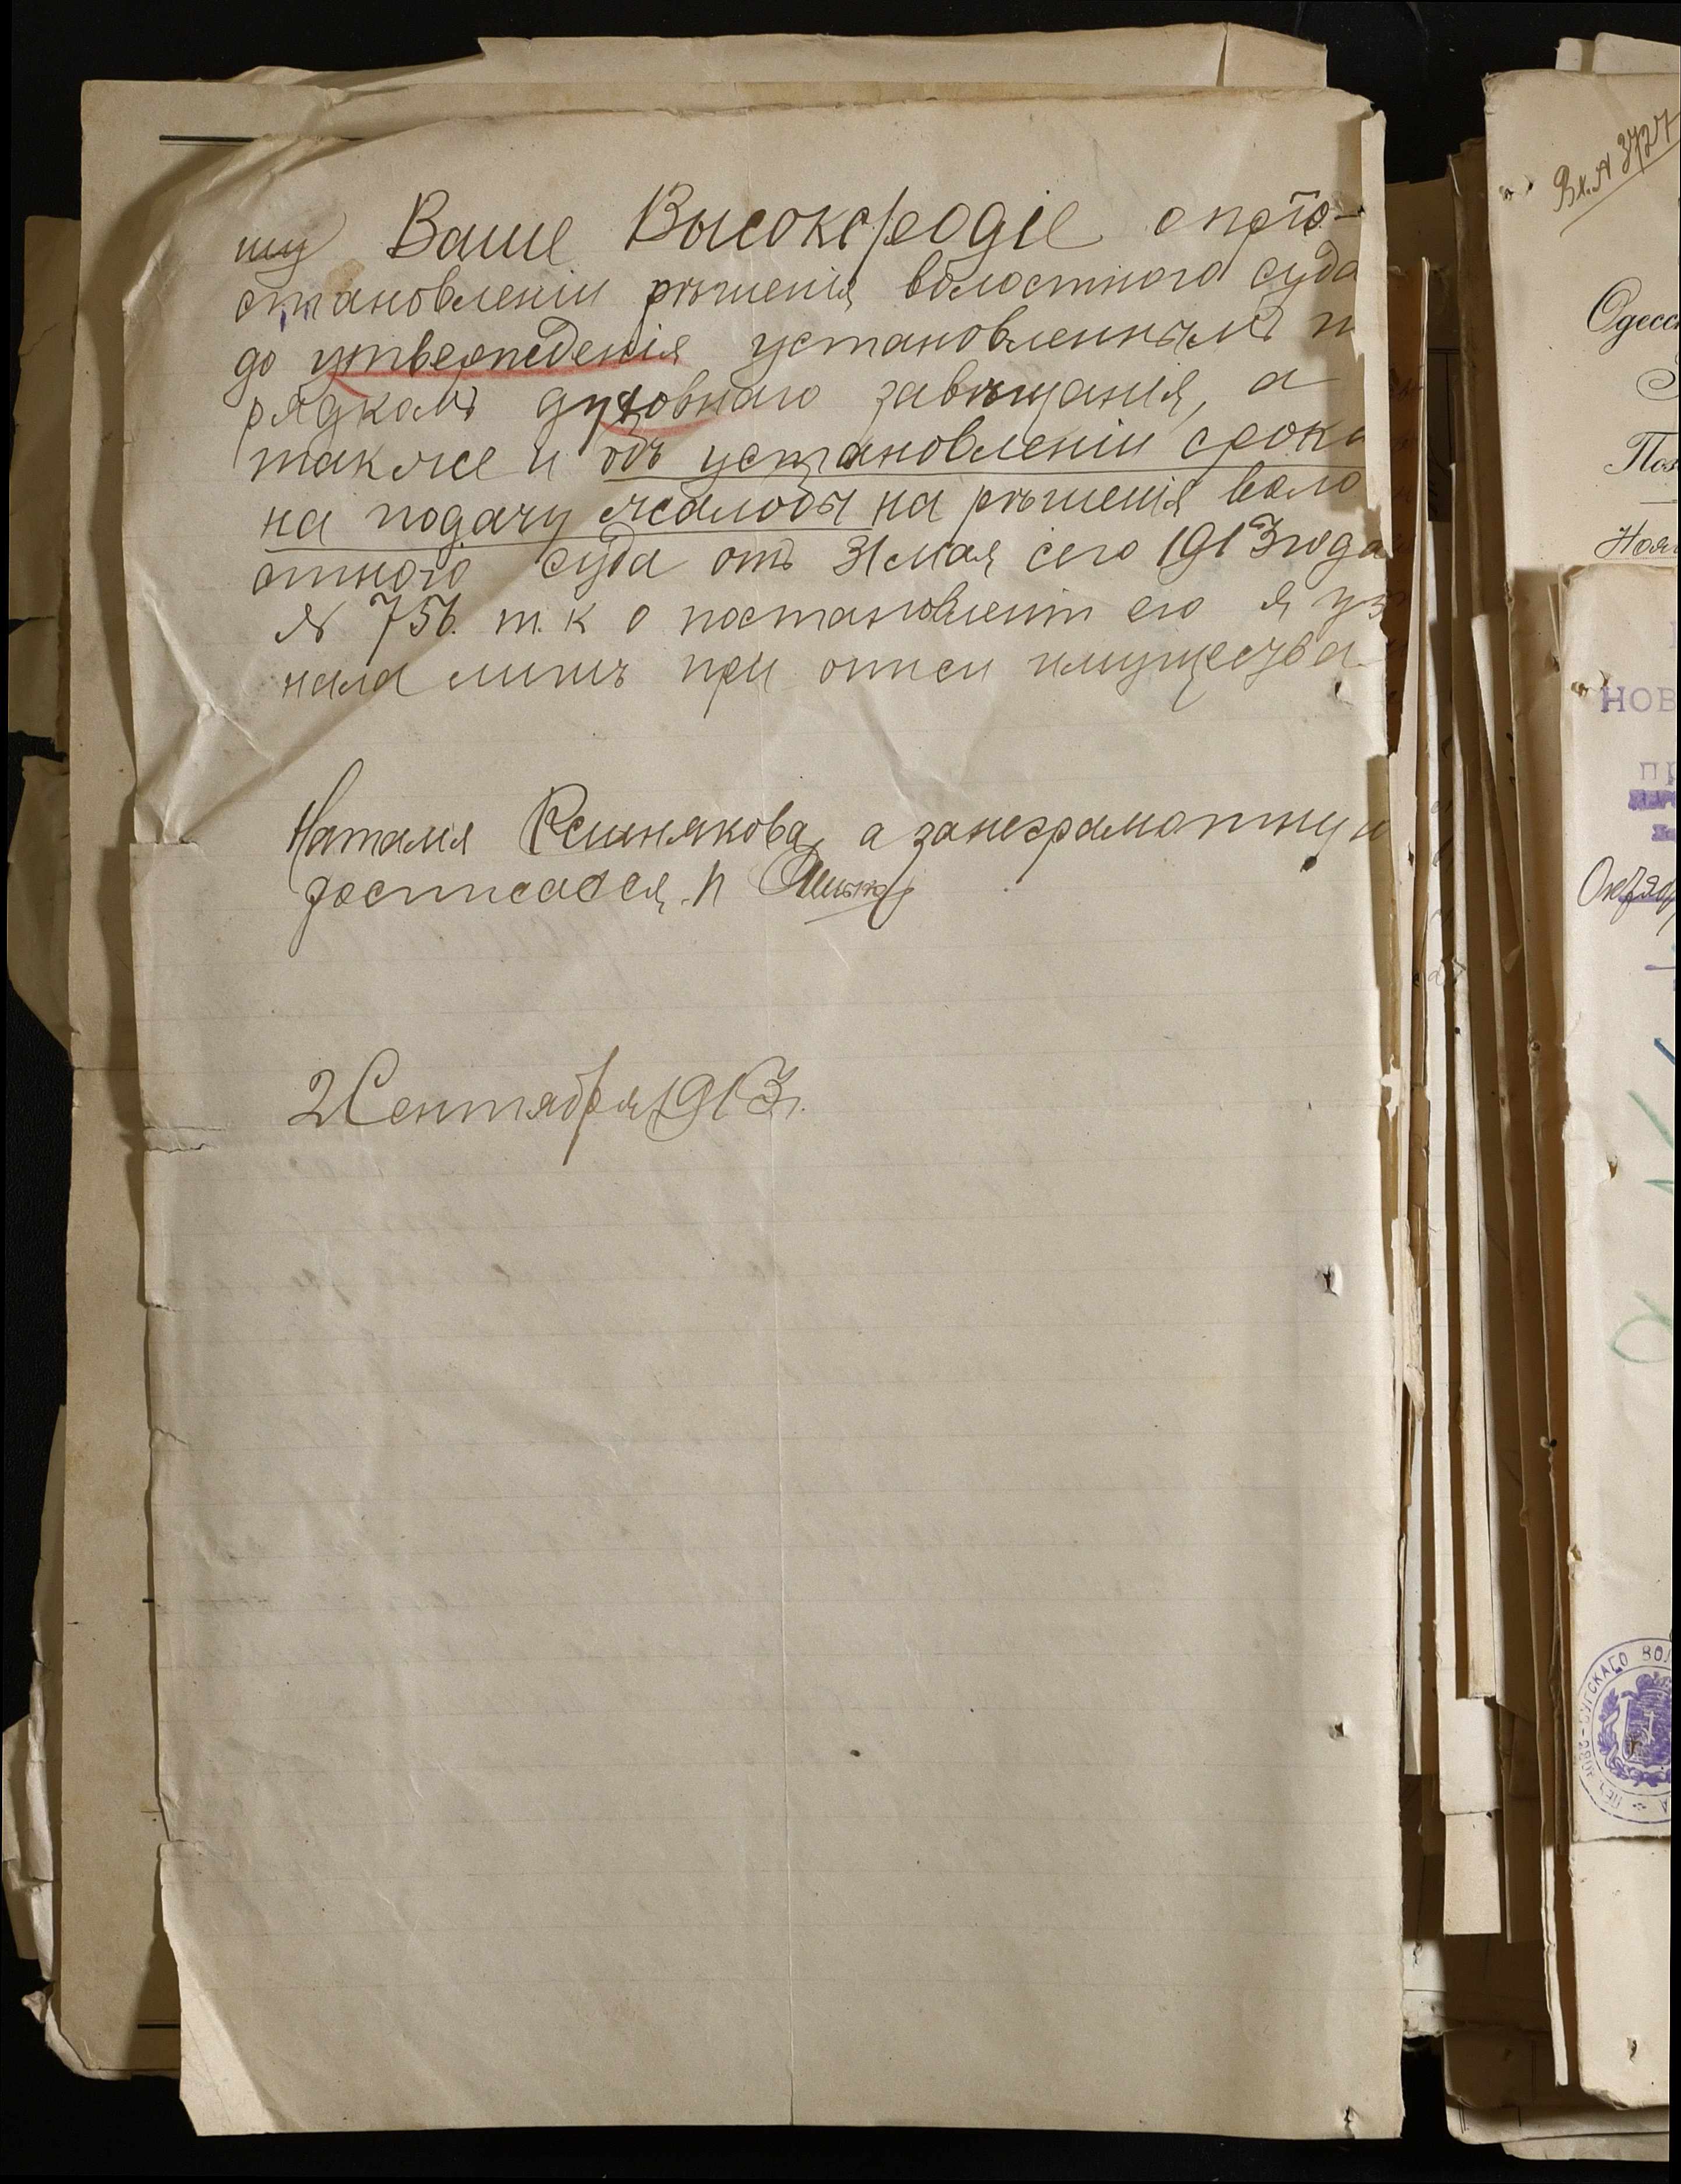 шу Ваше Высокородіе о прiо-
становленіи рѣшенія волостного суда
до утвержденія установленнымъ п
рядкомъ духовнаго завѣщанія, а
также и объ установленіи срока
на подачу жалобы на рѣшенія воло
стного суда отъ 31 мая сего 1913 года
№ 756. т. к о постановленіи его я уз
нала лишь при описи имущества
Наталія а занеграмотную
росписался
2 Сентября 1913 г.
Вх. № 3727
Одесс
Поз
Ноя
НОВ
ПР
Октяб